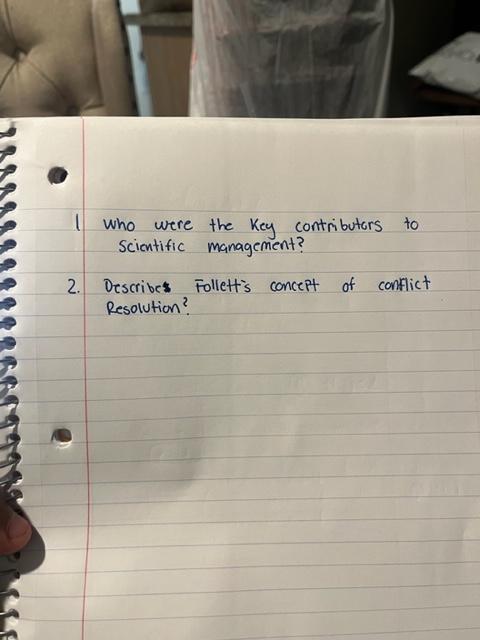 1 Who were the Key contributors to
Scientific management?
2. Describes Follett's concept of conflict
Resolution?